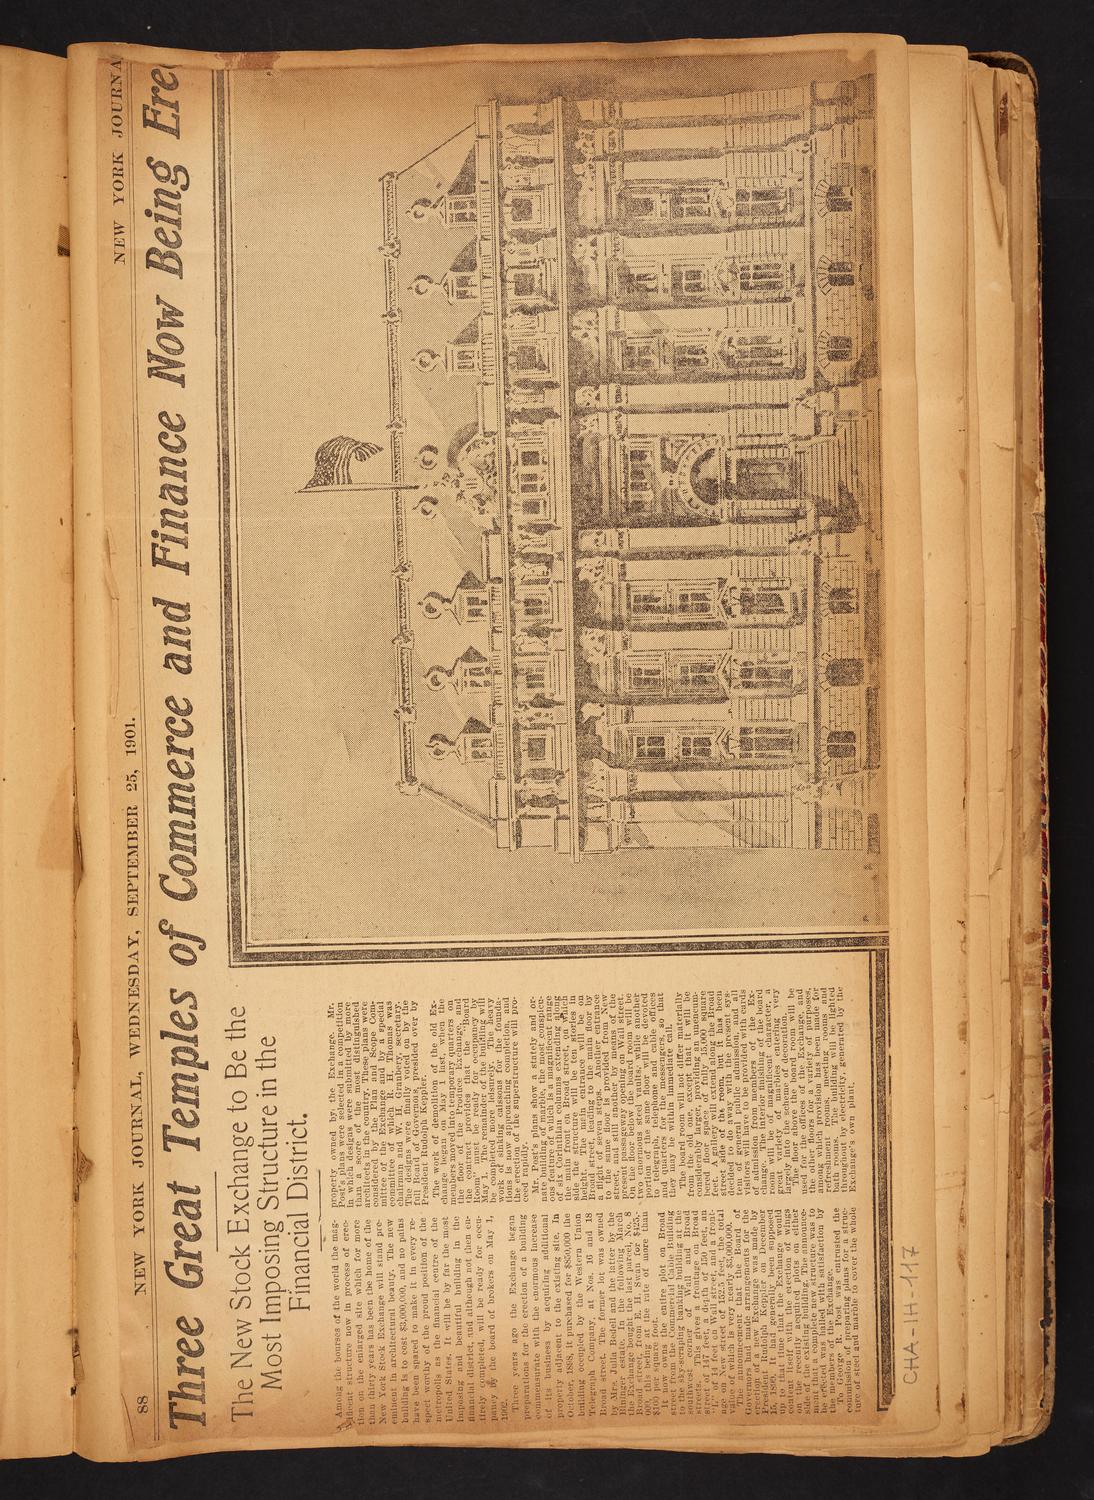 88 NEW YORK JOURNAL, WEDNESDAY, SEPTEMBER 25, 1901.
NEW YORK JOURNA
Three Great Temples of Commerce and Finance Now Being Erec
The New Stock Exchange to Be the
Most Imposing Structure in the
Financial District.
Among the bourses of the world the mag-
nificent structure now in process of erec-
tion on the enlarged site which for more
than thirty years has been the home of the
New York Stock Exchange will stand pre-
eminent in architectural beauty. The new
building is to cost $3,000,000, and no pains
have been spared to make it in every re-
spect worthy of the proud position of the
metropolis as the financial centre of the
United States. It will be by far the most
imposing and beautiful building in the
financial district, and although not then en-
tirely completed, will be ready for occu-
pancy by the board of brokers on May 1,
1902.
Three years ago the Exchange began
preparations for the erection of a building
commensurate with the enormous increase
of its business by acquiring additional
property adjacent to the existing site. In
October, 1898, it purchased for $850,000 the
building occupied by the Western Union
Telegraph Company, at Nos. 16 and 18
Broad street. The former lot was owned
by Mrs. Julia Redell and the latter by the
Bininger estate. In the following March
the Exchange bought the last parcel, No. 8
Broad street, from E. H. Swan for $425,-
000, this being at the rate of more than
$160 per square foot.
It now owns the entire plot on Broad
street from the Commercial Cable Building
to the sky-scraping banking building at the
southwest corner of Wall and Broad
streets. This gives a frontage on Broad
street of 147 feet, a depth of 150 feet, an
"L" of 14 feet on Wall street, and a front-
age on New street of 152.5 feet, the total
value of which is very nearly $5,000,000.
The announcement that the Board of
Governors had made arrangements for the
erection of a new Exchange was made by
President Rudolph Keppler on December
15, 1900. It had generally been supposed
up to that time that the Exchange would
content itself with the erection of wings
on the recently acquired plots on either
side of the existing building. The announce-
ment that a complete new structure was to
be erected was hailed with satisfaction by
the members of the Exchange.
To George B. Post was entrusted the
commission of preparing plans for a struc-
ture of steel and marble to cover the whole
property owned by the Exchange. Mr.
Post's plans were selected in a competition
in which designs were submitted by more
than a score of the most distinguished
architects in the country. These plans were
considered by the Plan and Scope Com-
mittee of the Exchange and a special
committee of which R. H. Thomas was
chairman and W. H. Granbery, secretary.
The designs were finally voted on by the
full Board of Governors, presided over by
President Rudolph Keppler.
The work of demolition of the old Ex-
change began on May 1 last, when the
members moved into temporary quarters on
the floor of the Produce Exchange, and
the contract provides that the "Board
Room" must be ready for occupancy by
May 1. The remainder of the building will
be completed more leisurely. The heavy
work of sinking caissons for the founda-
tions is now approaching completion, and
the erection of the superstructure will pro-
ceed rapidly.
Mr. Post's plans show a stately and or-
nate building of marble, the most conspicu-
ous feature of which is a magnificent range
of six Corinthian columns extending along
the main front on Broad street, on which
side the structure will be ten stories in
height. The main entrance will be on
Broad street, leading to the main floor by
a flight of seven steps. Another entrance
to the same floor is provided from New
street, and still another by means of the
present passageway opening on Wall street.
On the floor beneath the board room will be
two enormous steel vaults, while another
portion of the same floor will be devoted
to telegraph, telephone and cable offices
and quarters for the messengers, so that
they may be within immediate call.
The board room will not differ materially
from the old one, excepting that it will be
considerably larger, providing an unencum-
bered floor space of fully 15,000 square
feet. A gallery will extend along the Broad
street side of the room, but it has been
decided to do away with the present sys-
tem of general public admission, and all
visitors will have to be provided with cards
of admission from members of the Ex-
change. The interior finishing of the board
room will be of a magnificent character, a
great variety of marbles entering very
largely into the scheme of decoration.
The floor above the board room will be
used for the offices of the Exchange, and
the other floors for a variety of purposes,
among which provision has been made for
luncheon rooms, meeting rooms and
bath rooms. The building will be lighted
throughout by electricity generated by the
Exchange's own plant.
CHA-IH-117